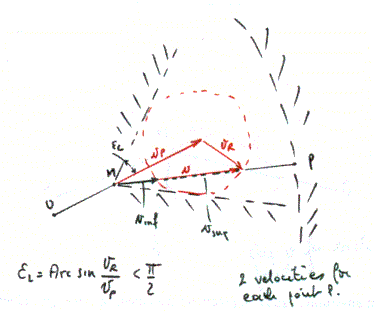 ε_L
M
v_P
v_R
P
v
U
v_inf
v_sup
ε_L = Arc sin v_R / v_P < π / 2
2 velocities for
each point P.